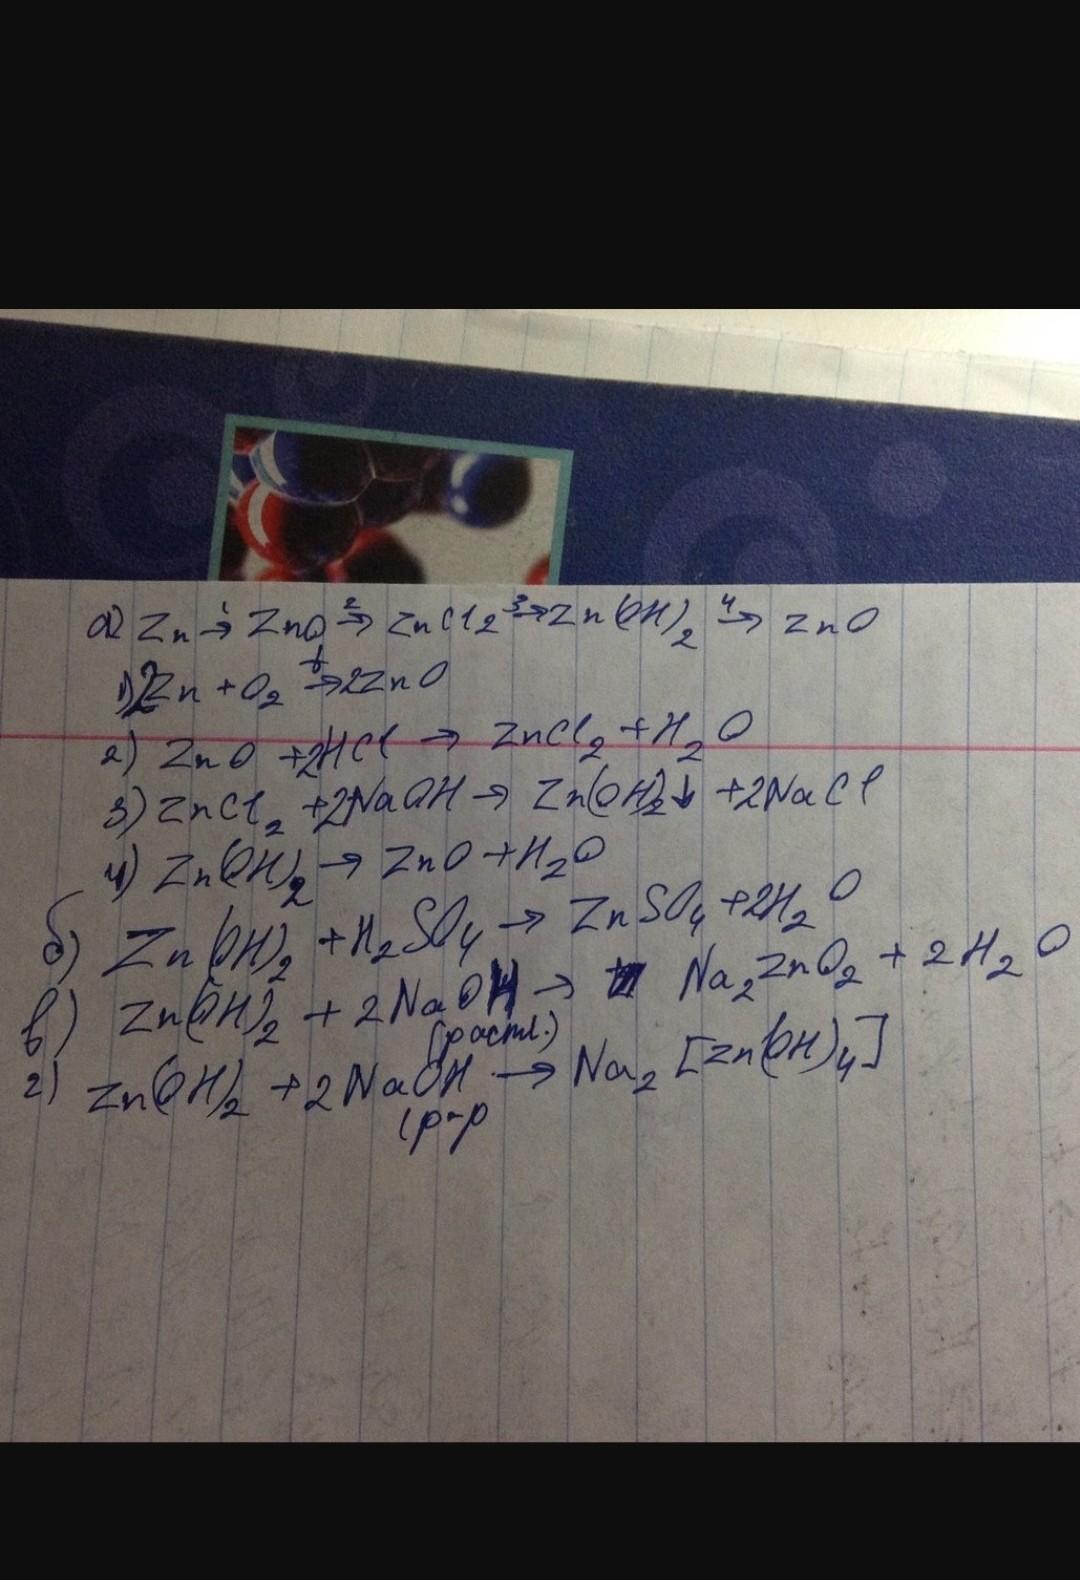 а) Zn →¹ ZnO →² ZnCl₂ →³ Zn(OH)₂ →⁴ ZnO
1) 2Zn + O₂ →ᵗ 2ZnO
2) ZnO + 2HCl → ZnCl₂ + H₂O
3) ZnCl₂ + 2NaOH → Zn(OH)₂↓ + 2NaCl
4) Zn(OH)₂ → ZnO + H₂O
б) Zn(OH)₂ + H₂SO₄ → ZnSO₄ + 2H₂O
в) Zn(OH)₂ + 2NaOH → Na₂ZnO₂ + 2H₂O
(распл.)
г) Zn(OH)₂ + 2NaOH → Na₂[Zn(OH)₄]
(р-р